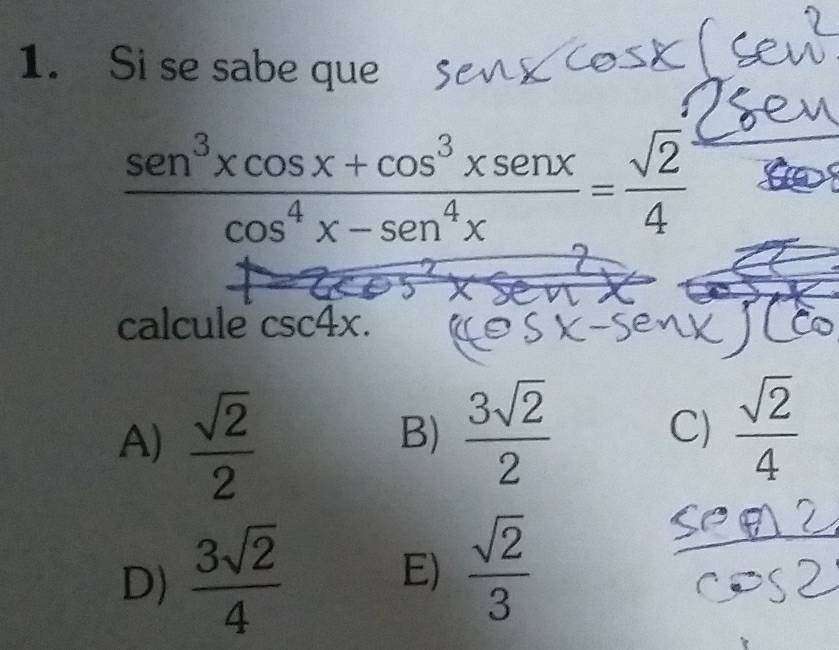 1. Si se sabe que senx cosx (sen²
2sen
sen³x cosx + cos³x senx / cos⁴x − sen⁴x = √2 / 4
calcule csc4x. (cosx-senx)(co
A) √2/2 B) 3√2/2 C) √2/4
D) 3√2/4 E) √2/3
sen2
cos2